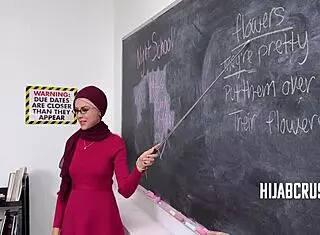 WARNING:
DUE DATES
ARE CLOSER
THAN THEY
APPEAR
Night School
flowers
They're pretty
Put them over
Their flowers
HIJABCRUS